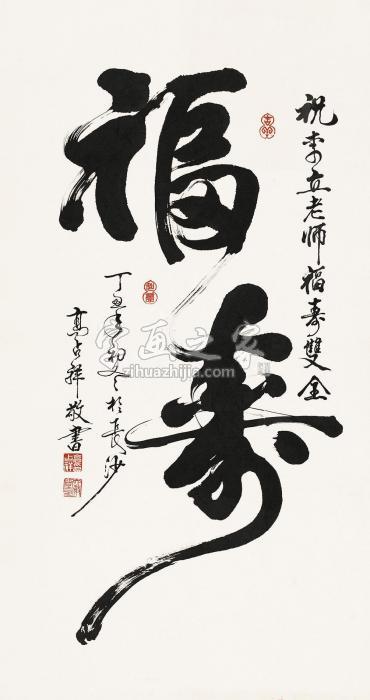 祝李立老师福寿雙全
福寿
丁丑年初冬於長沙
高占祥敬書
字画之家
zihuazhijia.com